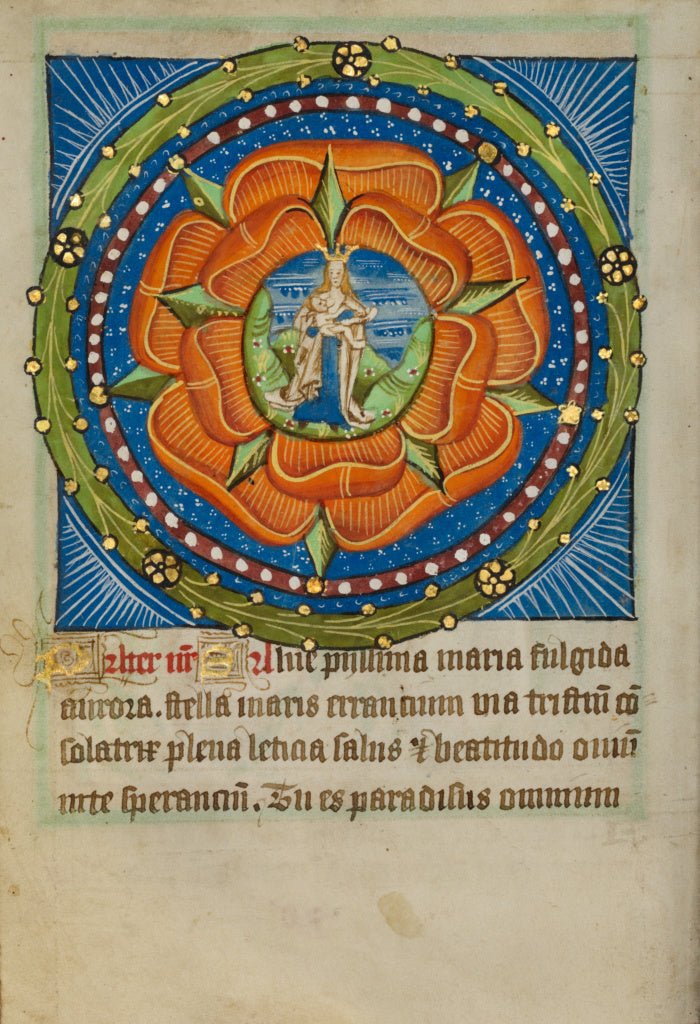 Pater nr̄ Salue pijssima maria fulgida
aurora. stella maris errancium via tristiū cō
solatrix plena leticia salus ⁊ beatitudo omī
in te speranciū. Tu es paradisus omnium